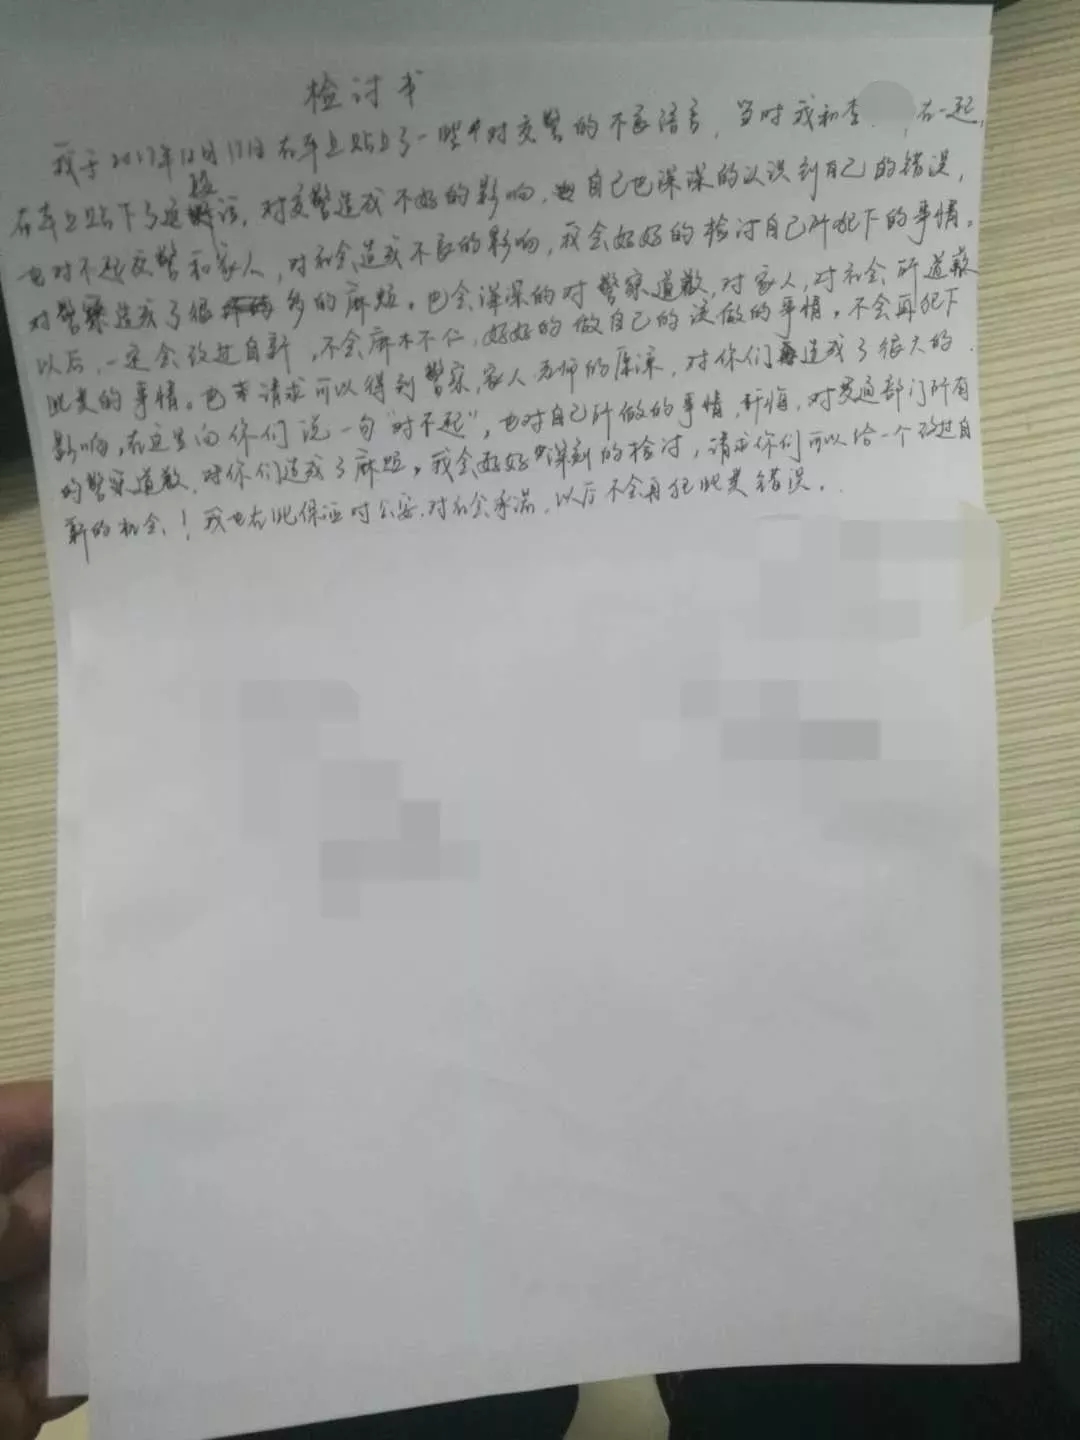 检讨书
我于2017年12月17日在车上贴上了一些对交警的不良语言，当时我和李 在一起，
在车上贴下了这段话，对交警造成不好的影响，自己也深深的认识到自己的错误，
也对不起交警和家人，对社会造成不良的影响，我会好好的检讨自己所犯下的事情。
对警察造成了很多的麻烦。也会深深的对警察道歉，对家人，对社会所道歉
以后，一定会改过自新，不会麻木不仁，好好的做自己的该做的事情。不会再犯下
此类的事情。也请求可以得到警察，家人 老师的原谅，对你们造成了很大的
影响，在这里向你们说一句“对不起”，也对自己所做的事情，忏悔，对交通部门所有
的警察道歉，对你们造成了麻烦。我会好好深刻的检讨，请求你们可以给一个改过自
新的机会！我也在此保证对公安，对社会承诺，以后不会再犯此类错误。